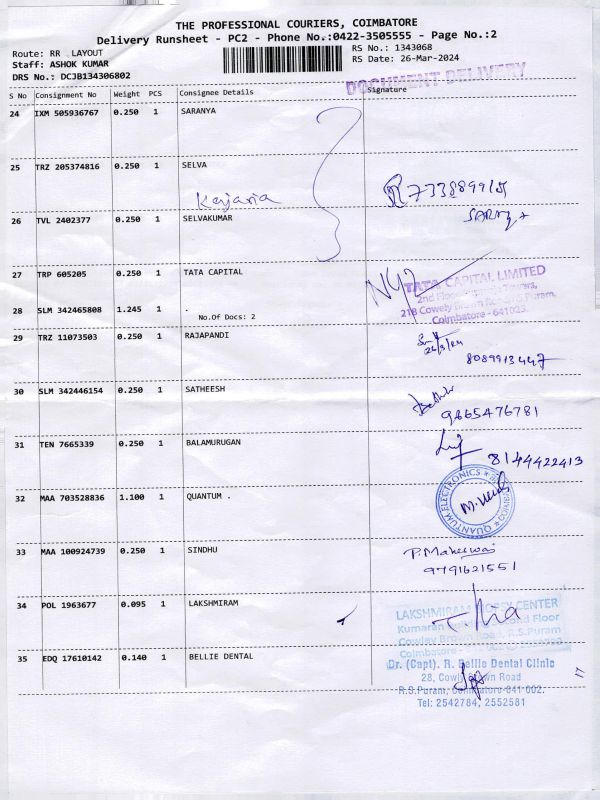 THE PROFESSIONAL COURIERS, COIMBATORE
Delivery Runsheet - PC2 - Phone No.:0422-3505555 - Page No.:2
Route: RR LAYOUT
Staff: ASHOK KUMAR
DRS No.: DCJB134306802
RS No.: 1343068
RS Date: 26-Mar-2024
DOCUMENT DELIVERY
S No Consignment No Weight PCS Consignee Details Signature
24 IXM 505936767 0.250 1 SARANYA
25 TRZ 205374816 0.250 1 SELVA
26 TVL 2402377 0.250 1 SELVAKUMAR
27 TRP 605205 0.250 1 TATA CAPITAL
TATA CAPITAL LIMITED
2nd Floor
Coimbatore - 641025.
28 SLM 342465808 1.245 1 .
No.Of Docs: 2
29 TRZ 11073503 0.250 1 RAJAPANDI
26/3/24
8089913447
30 SLM 342446154 0.250 1 SATHEESH
9865476781
31 TEN 7665339 0.250 1 BALAMURUGAN
8144422413
32 MAA 703528836 1.100 1 QUANTUM .
QUANTUM ELECTRONICS
33 MAA 100924739 0.250 1 SINDHU
P. Maheswari
9791621551
34 POL 1963677 0.095 1 LAKSHMIRAM
LAKSHMIRAM CENTER
Kumaran Second Floor
Cowley Brown Road, R.S.Puram
Coimbatore
35 EDQ 17610142 0.140 1 BELLIE DENTAL
Dr. (Capt). R. Bellie Dental Clinic
28, Cowley Brown Road
R.S.Puram, Coimbatore-641 002.
Tel: 2542784, 2552581